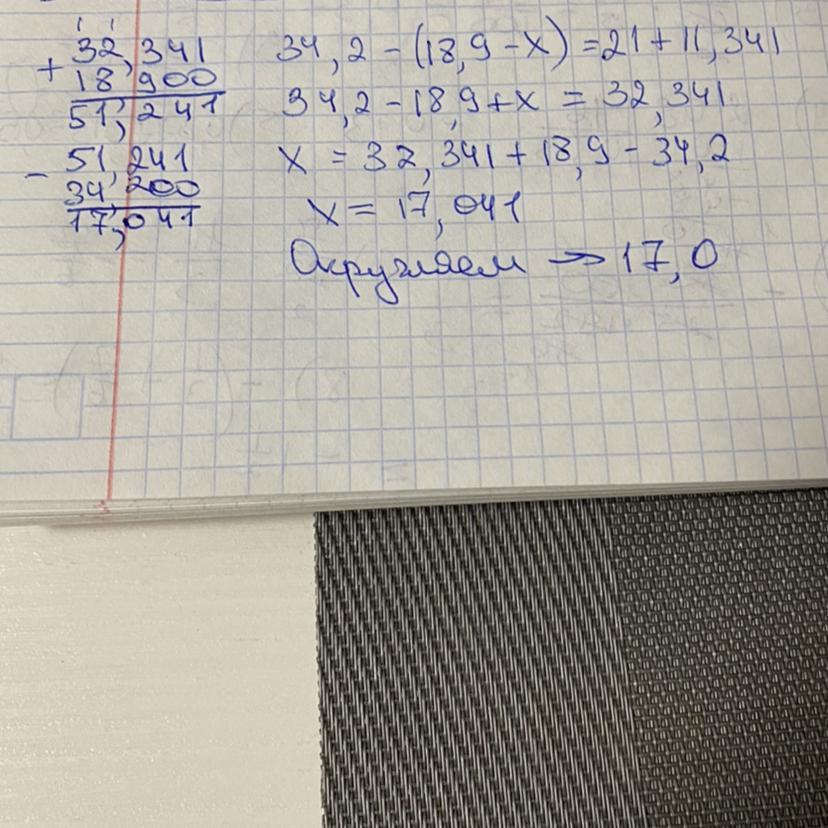 1 1
+ 32,341
18,900
51,241
- 51,241
34,200
17,041
34,2-(18,9-x)=21+11,341
34,2-18,9+x = 32,341
x = 32,341+18,9-34,2
x = 17,041
Округляем → 17,0